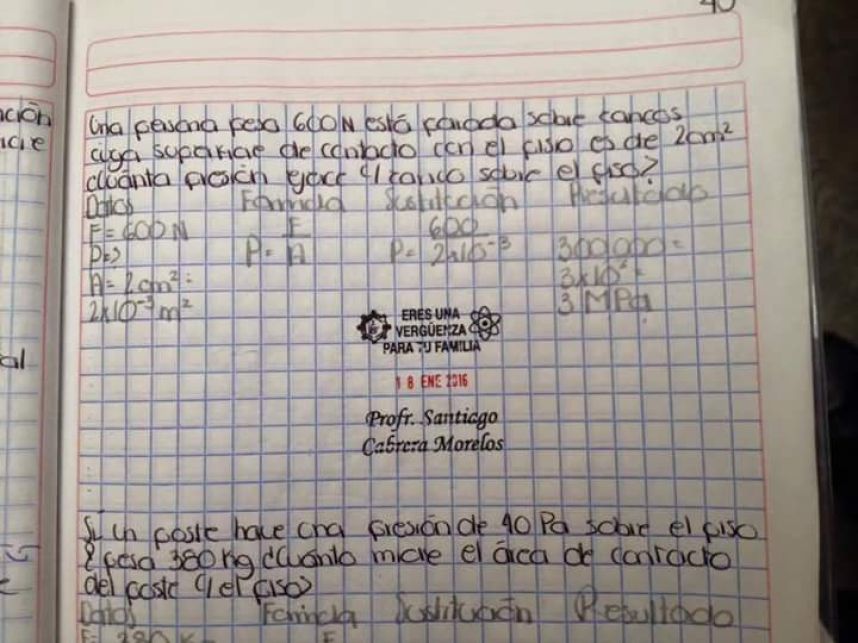 40
Una persona pesa 600N está parada sobre tancos
cuya superficie de contacto con el piso es de 2cm²
¿Cuánta presión ejerce c/ tanco sobre el piso?
Datos Formula Sustitución Resultado
F=600N F 600
P=? P= A P= 2x10⁻³ 300,000=
A=2cm²= 3x10⁵=
2x10⁻³m² 3 MPa
ERES UNA
VERGÜENZA
PARA TU FAMILIA
18 ENE 2016
Profr. Santiago
Cabrera Morelos
Si un poste hace una presión de 40 Pa sobre el piso
y pesa 380 kg ¿Cuánto mide el área de contacto
del poste c/ el piso?
Datos Formula Sustitución Resultado
ción
al